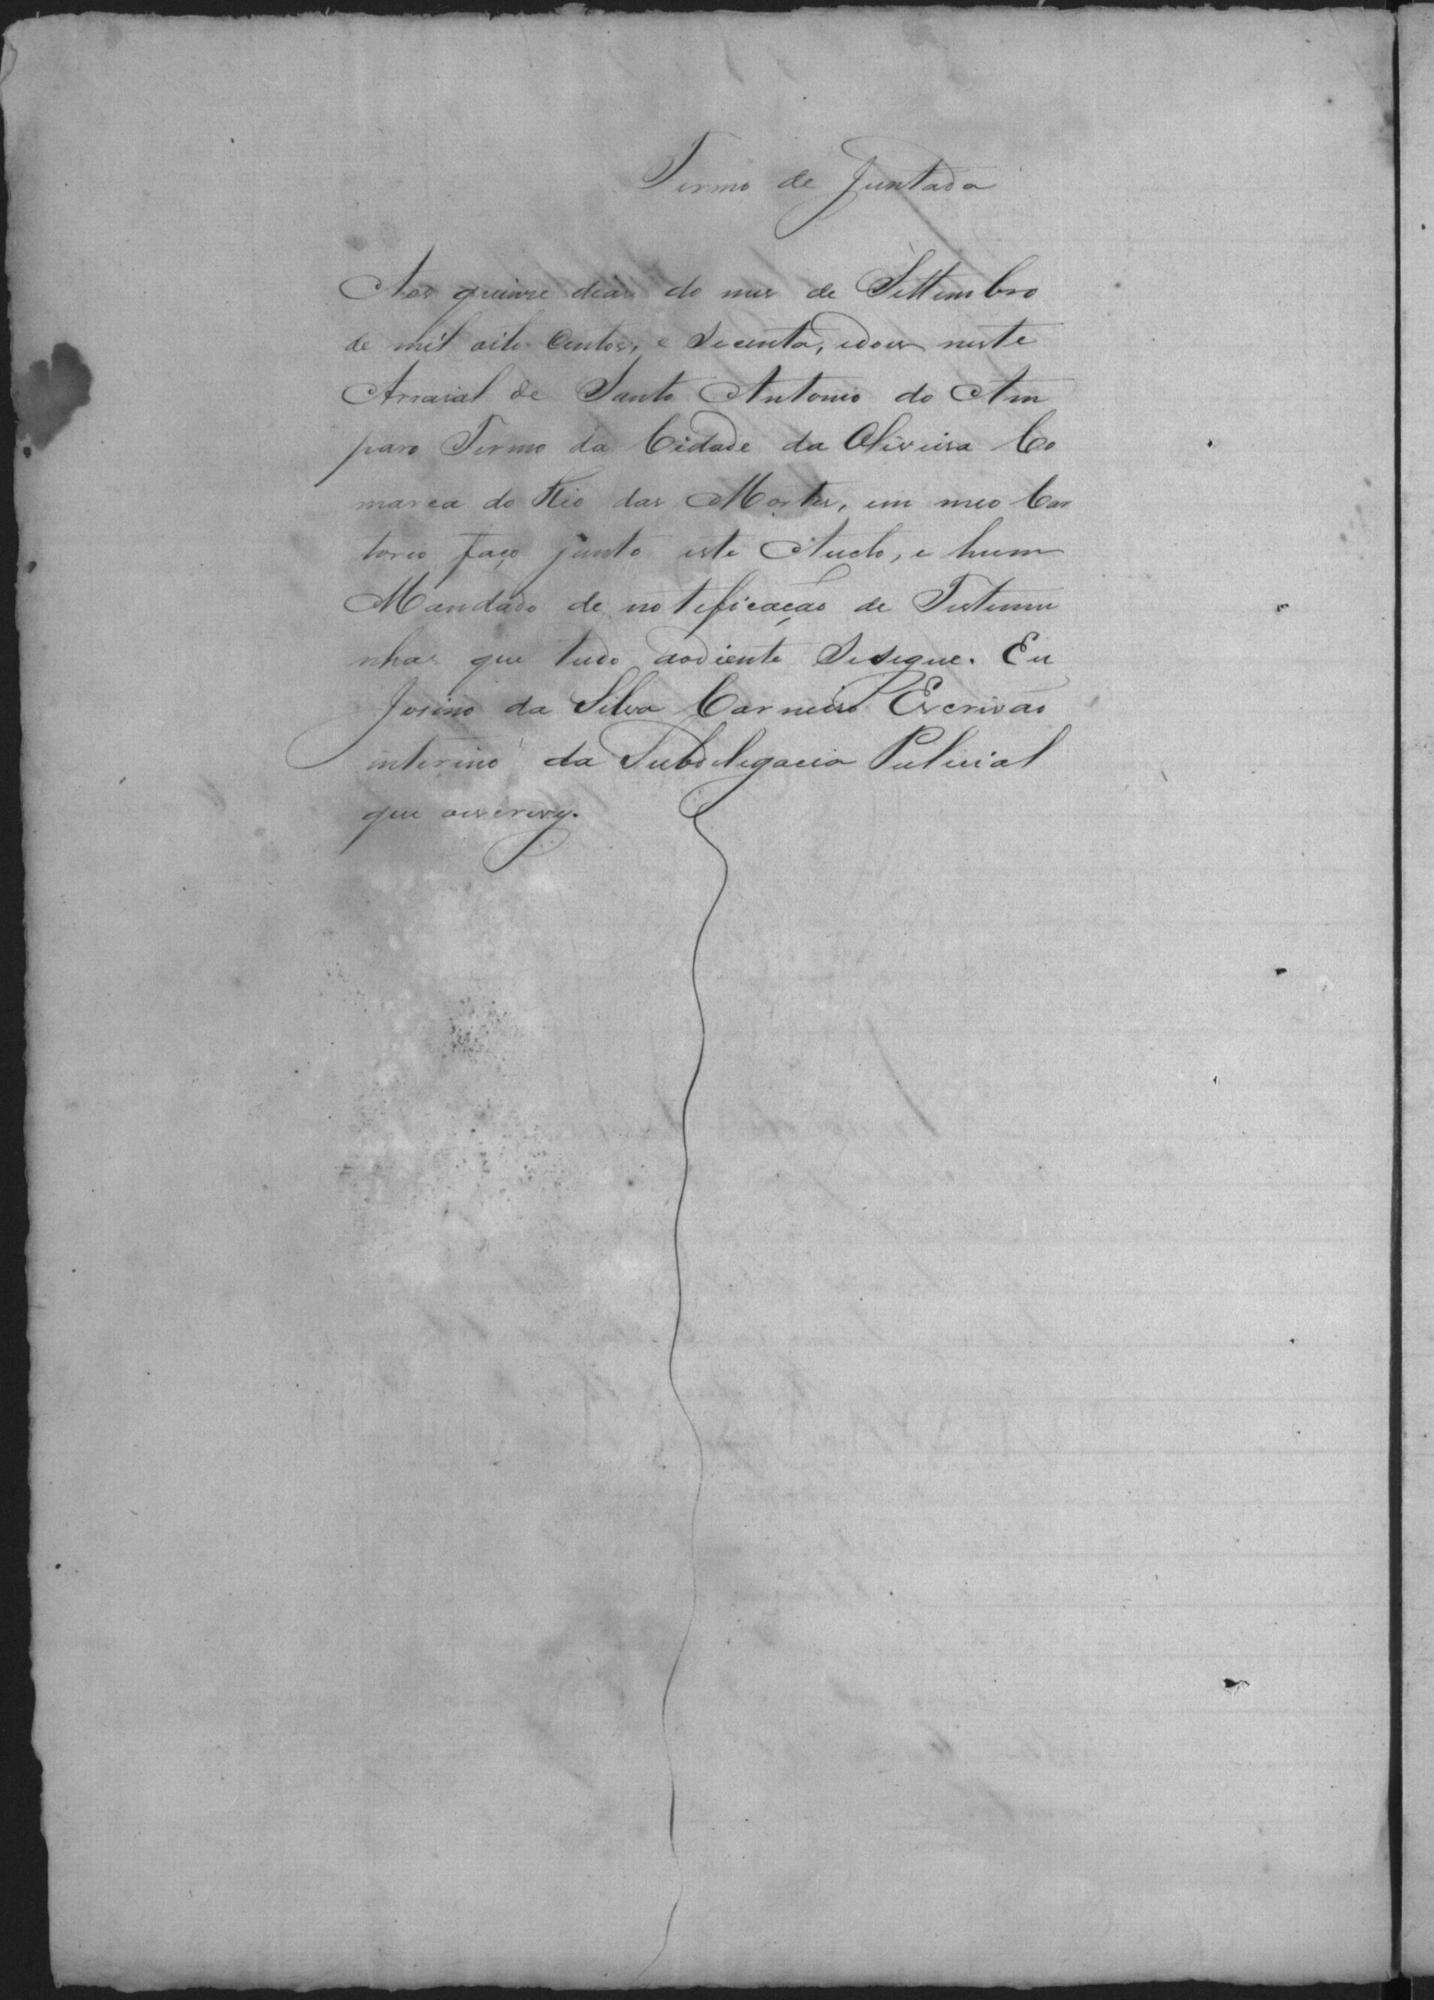 Termo de Juntada
Aos quinze dias do mes de Settembro
de mil oito centos, e Secenta, edous neste
Arraial de Santo Antonio do Am
paro Termo da Cidade da Oliveira Co
marca do Rio das Mortes, em meo Car
torio faço junto este Aucto, e hum
Mandado de notificação de Testemu
nhas que tudo aodiente Sesegue. Eu
Josino da Silva Carneiro Escrivão
interino da Subdelegacia Policial
que oescrevy.